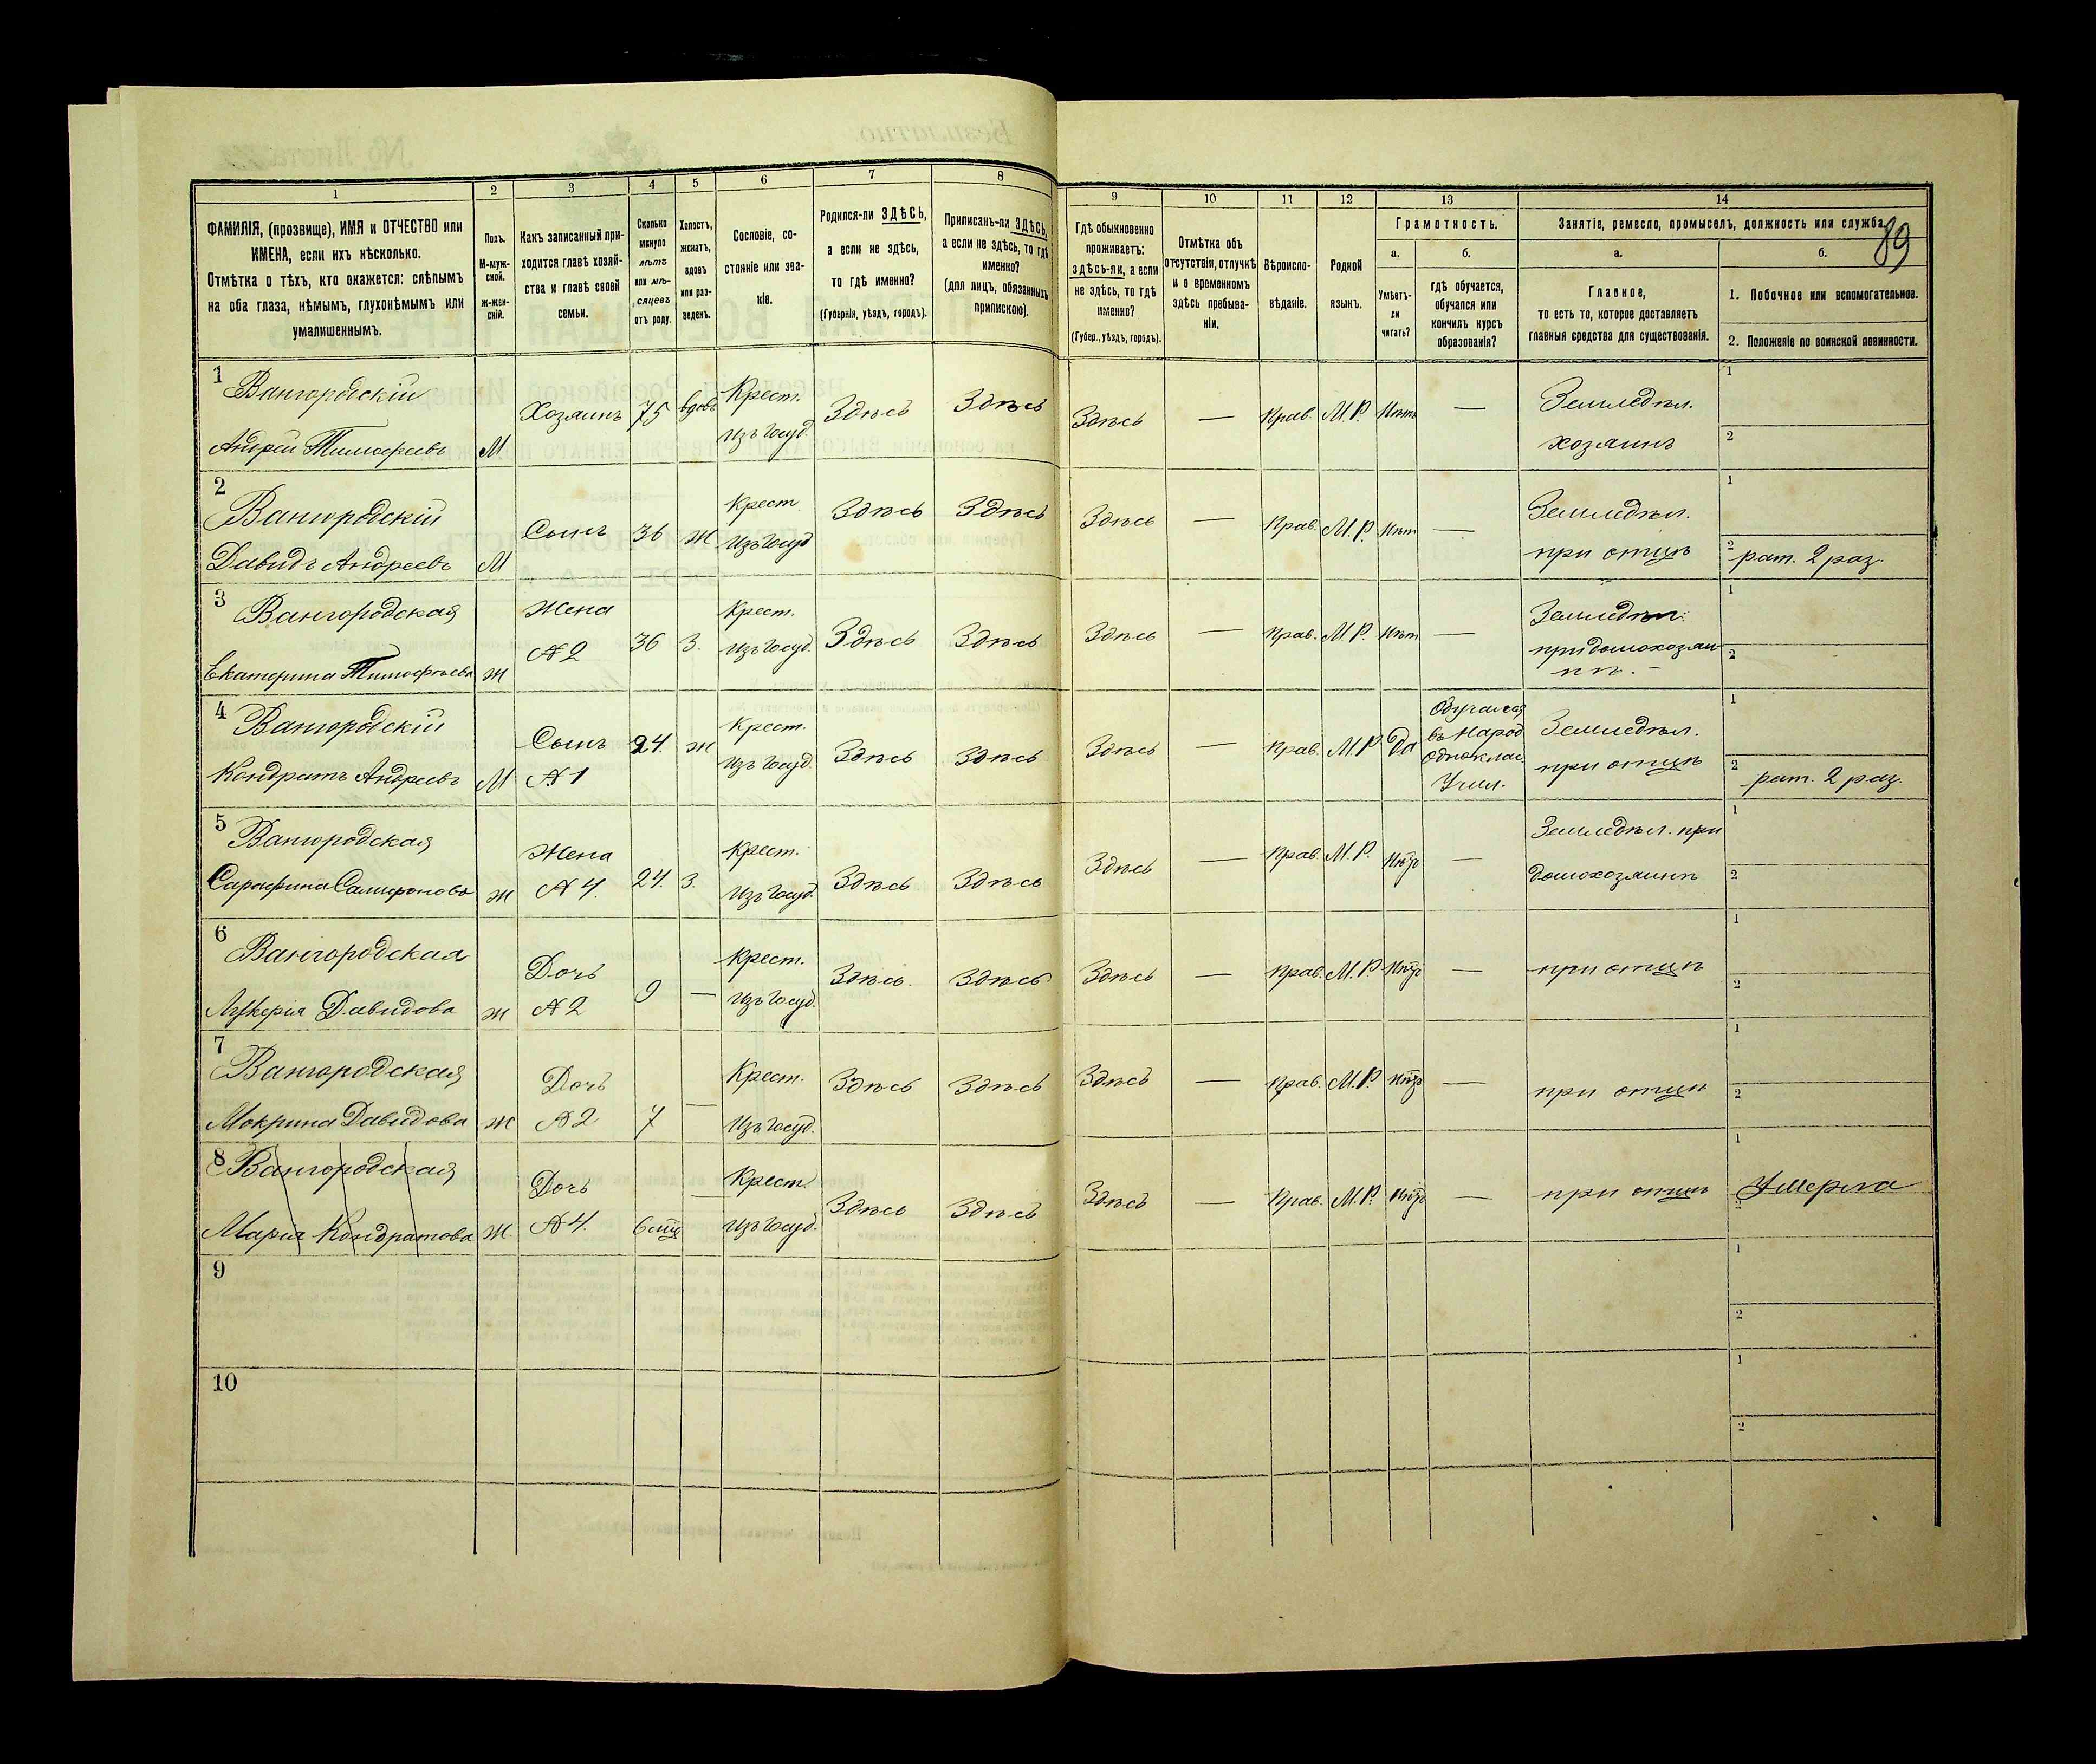 89
1 2 3 4 5 6 7 8 9 10 11 12 13 14
ФАМИЛІЯ, (прозвище), ИМЯ и ОТЧЕСТВО или
ИМЕНА, если ихъ нѣсколько.
Отмѣтка о тѣхъ, кто окажется: слѣпымъ
на оба глаза, нѣмымъ, глухонѣмымъ или
умалишеннымъ.
Полъ.
М-муж-
ской.
Ж-жен-
скій.
Какъ записанный при-
ходится главѣ хозяй-
ства и главѣ своей
семьи.
Сколько
минуло
лѣтъ
или мѣ-
сяцевъ
отъ роду.
Холостъ,
женатъ,
вдовъ
или раз-
веденъ.
Сословіе, со-
стояніе или зва-
ніе.
Родился-ли ЗДѢСЬ,
а если не здѣсь,
то гдѣ именно?
(Губернія, уѣздъ, городъ).
Приписанъ-ли ЗДѢСЬ,
а если не здѣсь, то гдѣ
именно?
(для лицъ, обязанныхъ
припискою).
Гдѣ обыкновенно
проживаетъ:
здѣсь-ли, а если
не здѣсь, то гдѣ
именно?
(Губер., уѣздъ, городъ).
Отмѣтка объ
отсутствіи, отлучкѣ
и о временномъ
здѣсь пребыва-
ніи.
Вѣроиспо-
вѣданіе.
Родной
языкъ.
Грамотность.
а.
Умѣетъ-
ли
читать?
б.
гдѣ обучается,
обучался или
кончилъ курсъ
образованія?
Занятіе, ремесло, промыселъ, должность или служба.
а.
Главное,
то есть то, которое доставляетъ
главныя средства для существованія.
б.
1. Побочное или вспомогательное.
2. Положеніе по воинской повинности.
1
Вангородскій
Андрей Тимофеевъ
М
Хозяинъ
75
вдовъ
Крест.
Изъ Госуд.
Здѣсь
Здѣсь
Здѣсь
—
Прав.
М.Р.
Нѣтъ
—
Земледѣл.
хозяинъ
1
2
2
Вангородскій
Давидъ Андреевъ
М
Сынъ
36
Ж
Крест
Изъ Госуд
Здѣсь
Здѣсь
Здѣсь
—
Прав.
М.Р.
Нѣт
—
Земледѣл.
при отцѣ
1
2
рат. 2 раз.
3
Вангородская
Екатерина Тимофѣева
Ж
Жена
№2
36
З.
Крест.
Изъ Госуд.
Здѣсь
Здѣсь
Здѣсь
—
Прав.
М.Р.
Нѣт
—
Земледѣл.
при домохозяи
нѣ. -
1
2
4
Вангородскій
Кондратъ Андреевъ
М
Сынъ
№1
24.
Ж
Крест.
Изъ Госуд.
Здѣсь
Здѣсь
Здѣсь
—
Прав.
М.Р
Да
Обучался
въ Народ
Одноклас
Учил.
Земледѣл.
при отцѣ
1
2
рат. 2 раз.
5
Вангородская
Ж
Жена
№4.
24.
З.
Крест.
Изъ Госуд.
Здѣсь
Здѣсь
Здѣсь
—
Прав.
М.Р.
Нѣтъ
—
Земледѣл. при
домохозяинѣ
1
2
6
Вангородская
Давидова
Ж
Дочь
№2
9
—
Крест.
Изъ Госуд.
Здѣсь.
Здѣсь
Здѣсь
—
Прав.
М.Р.
Нѣтъ
—
при отцѣ
1
2
7
Вангородская
Мокрина Давидова
Ж
Дочь
№2
7
—
Крест.
Изъ Госуд.
Здѣсь
Здѣсь
Здѣсь
—
Прав.
М.Р.
Нѣтъ
—
при отцѣ
1
2
8
Вангородская
Марія Кондратова
Ж.
Дочь
№4.
—
Крест.
Изъ Госуд.
Здѣсь
Здѣсь
Здѣсь
—
Прав.
М.Р.
Нѣтъ
—
при отцѣ
1
Умерла
2
9
1
2
10
1
2